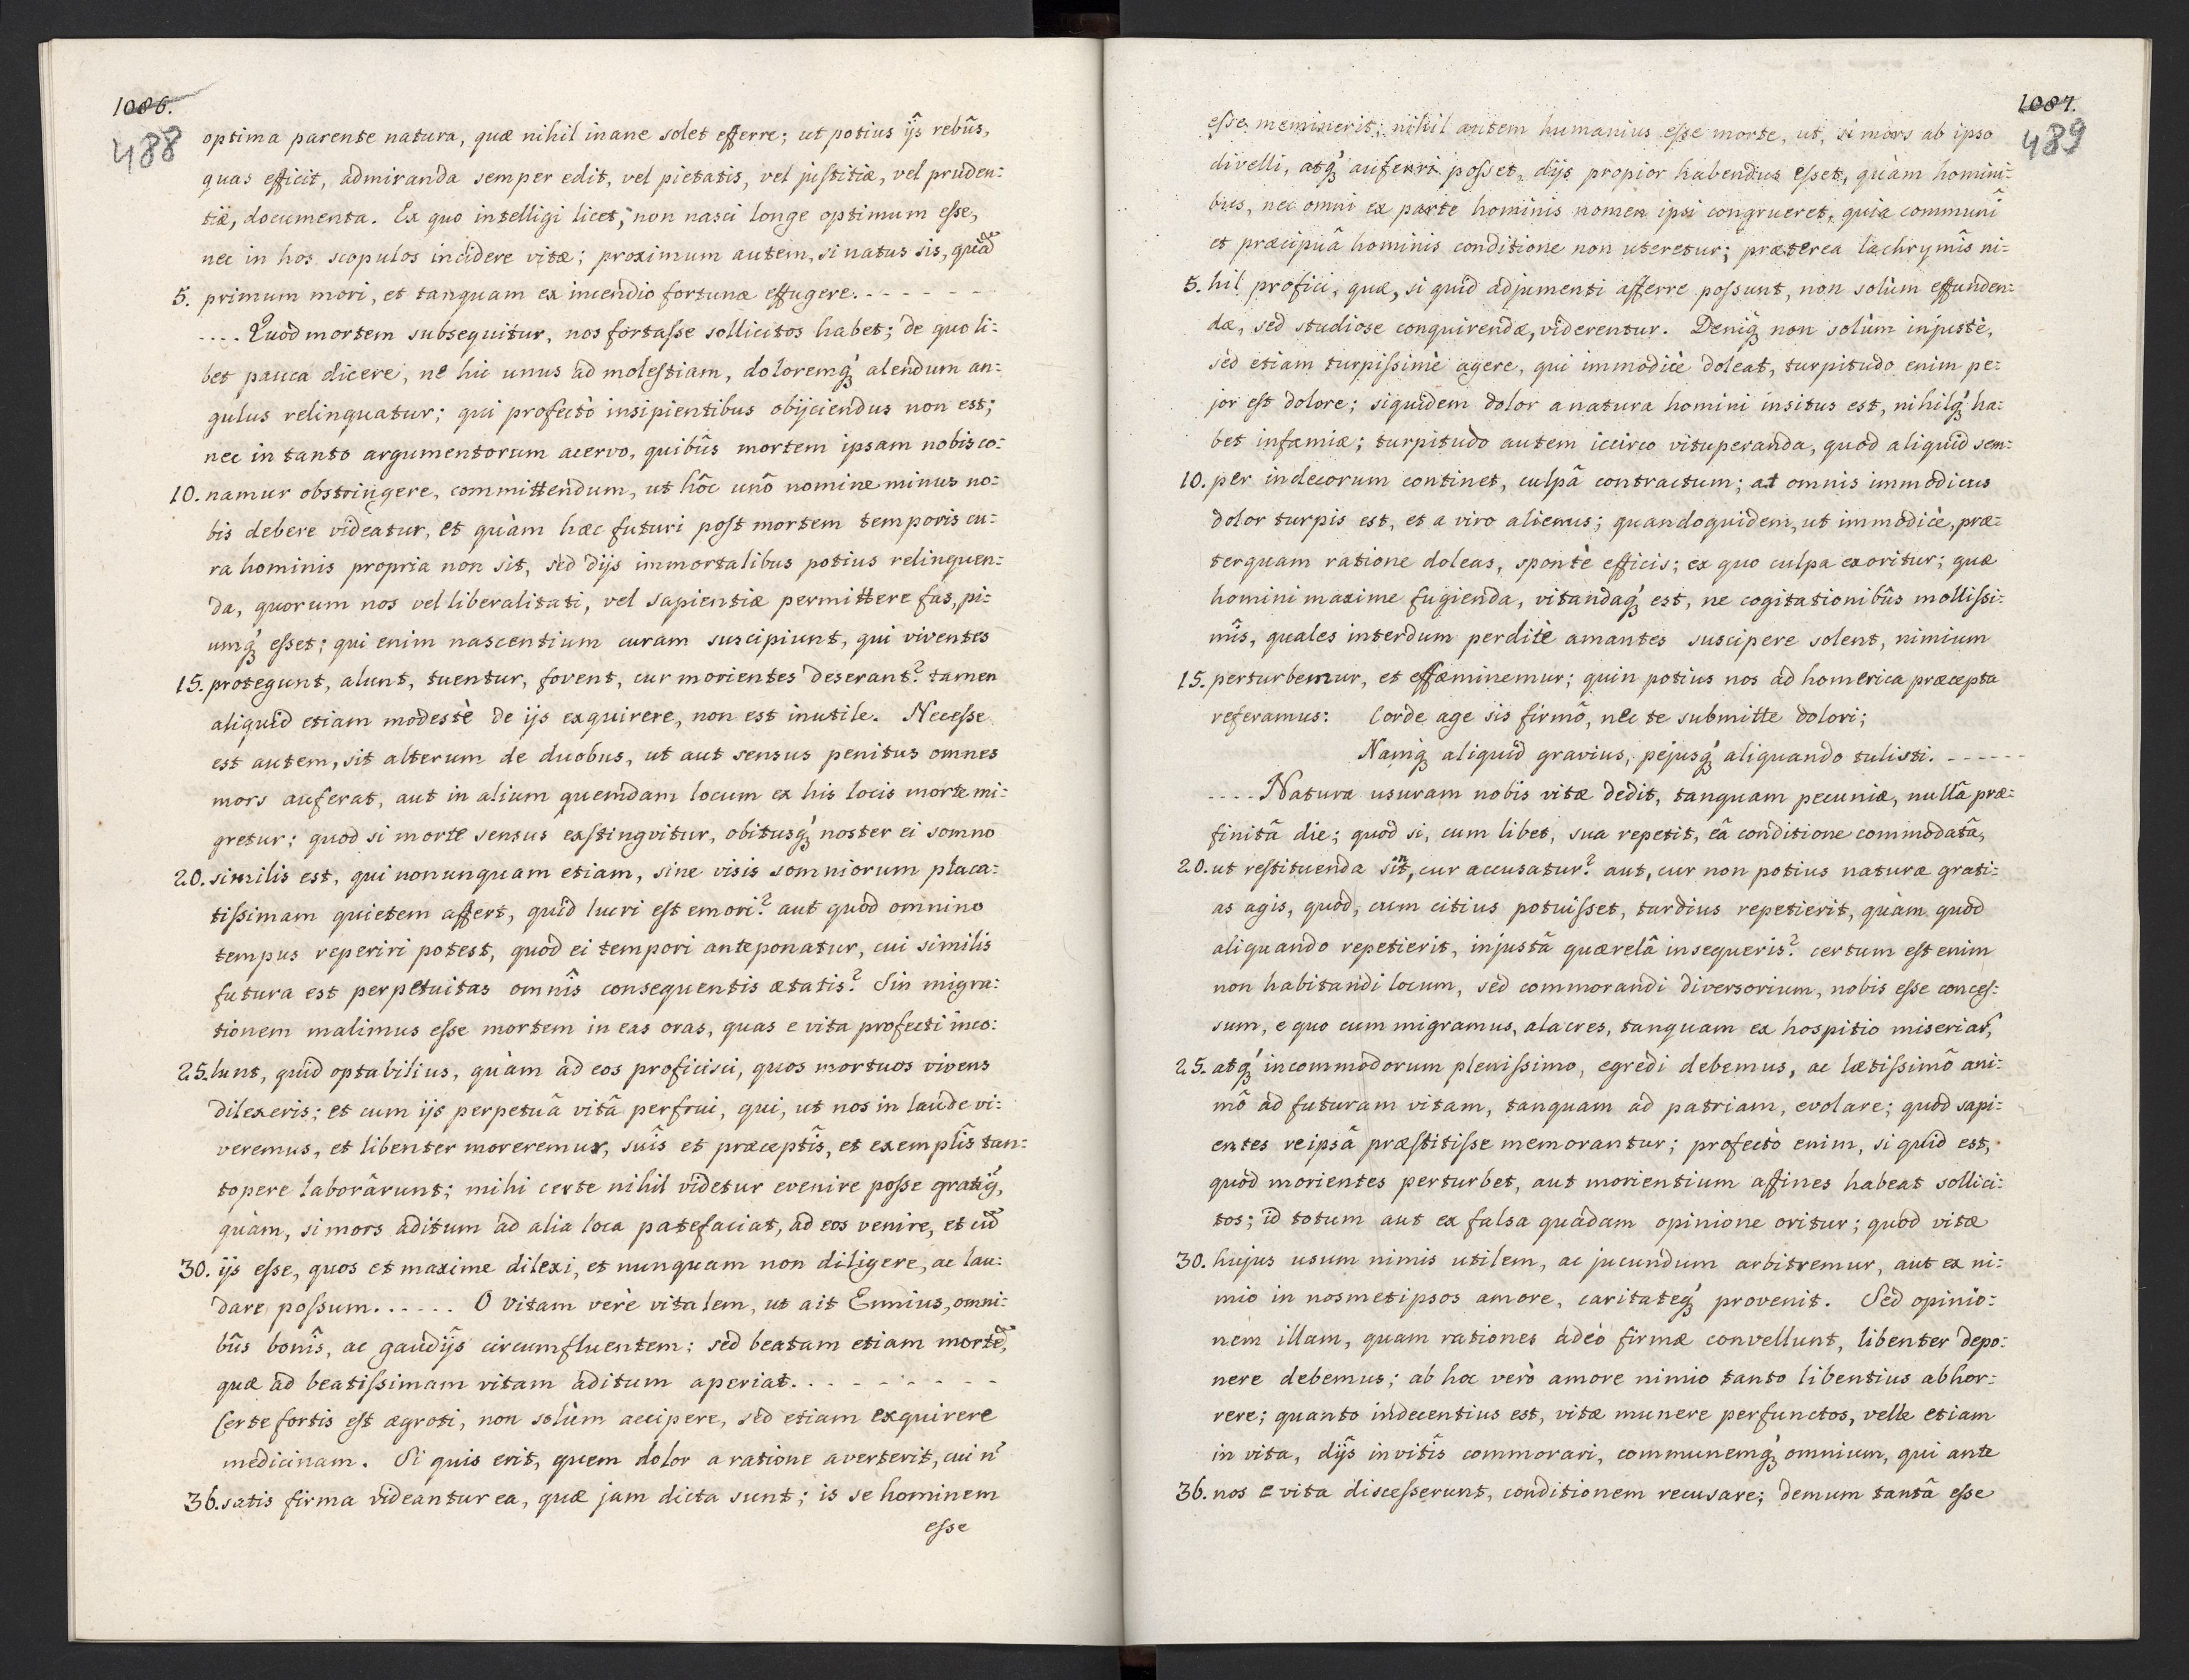 1086.
488
optima parente natura, quæ nihil inane solet efferre; ut potius ijs rebûs,
quas efficit, admiranda semper edit, vel pietatis, vel justitiæ, vel pruden:
tiæ, documenta. Ex quo intelligi licet, non nasci longe optimum esse,
nec in hos scopulos incidere vitæ; proximum autem, si natus sis, quã
5. primum mori, et tanquam ex incendio fortunæ effugere. - - - - - -
.... Quod mortem subsequitur, nos fortasse sollicitos habet; de quo li:
bet pauca dicere, ne hic unus ad molestiam, doloremq́ꝫ alendum an:
gulus relinquatur; qui profectò insipientibus obijciendus non est;
nec in tanto argumentorum acervo, quibûs mortem ipsam nobis co:
10. namur obstringere, committendum, ut hôc unô nomine minus no:
bis debere videatur, et quàm hæc futuri post mortem temporis cu:
ra hominis propria non sit, sed dijs immortalibus potius relinquen:
da, quorum nos vel liberalitati, vel sapientiæ permittere fas, pi:
umq́ꝫ esset; qui enim nascentium curam suscipiunt, qui viventes
15. protegunt, alunt, tuentur, fovent, cur morientes deserant? tamen
aliquid etiam modestè de ijs exquirere, non est inutile. Necesse
est autem, sit alterum de duobus, ut aut sensus penitus omnes
mors auferat, aut in alium quemdam locum ex his locis morte mi:
gretur; quod si morte sensus exstingvitur, obitusq́ꝫ noster ei somno
20. similis est, qui nonunquam etiam, sine visis somniorum placa:
tissimam quietem affert, quid lucri est emori? aut quod omnino
tempus reperiri potest, quod ei tempori anteponatur, cui similis
futura est perpetuitas omnîs consequentis ætatis? Sin migra:
tionem malimus esse mortem in eas oras, quas e vita profecti inco:
25. lunt, quid optabilius, quàm ad eos proficisci, quos mortuos vivens
dilexeris; et cum ijs perpetuâ vitâ perfrui, qui, ut nos in laude vi:
veremus, et libenter moreremur, suîs et præceptîs, et exemplîs tan:
topere laborârunt; mihi certe nihil videtur evenire posse gratiꝰ,
quàm, si mors aditum ad alia loca patefaciat, ad eos venire, et cũ
30. ijs esse, quos et maxime dilexi, et nunquam non diligere, ac lau:
dare possum. . . . . . O vitam verè vitalem, ut ait Ennius, omni:
bûs bonîs, ac gaudijs circumfluentem; sed beatam etiam mortẽ,
quæ ad beatissimam vitam aditum aperiat. . - - - - - - - -
Certe fortis est ægroti, non solùm accipere, sed etiam exquirere
medicinam. Si quis erit, quem dolor a ratione averterit, cui ñ
36. satis firma videantur ea, quæ jam dicta sunt; is se hominem
esse
1087.
489
esse meminerit; nihil autem humanius esse morte, ut, si mors ab ipso
divelli, atq́ꝫ auferri posset, dijs propior habendus esset, quàm homini:
bus, nec omni ex parte hominis nomen ipsi congrueret, quia communî
et præcipuâ hominis conditione non uteretur; præterea lachrymîs ni:
5. hil profici, quæ, si quid adjumenti afferre possunt, non solùm effunden:
dæ, sed studiose conquirendæ, viderentur. Deniq́ꝫ non solùm injustè,
sed etiam turpissimè agere, qui immodicè doleat, turpitudo enim pe:
jor est dolore; siquidem dolor a natura homini insitus est, nihilq́ꝫ ha:
bet infamiæ; turpitudo autem iccirco vituperanda, quod aliquid sem:
10. per indecorum continet, culpâ contractum; at omnis immodicus
dolor turpis est, et a viro alienus; quandoquidem, ut immodicè, præ:
terquam ratione doleas, spontè efficis; ex quo culpa exoritur; quæ
homini maxime fugienda, vitandaq́ꝫ est, ne cogitationibûs mollissi:
mîs, quales interdum perditè amantes suscipere solent, nimium
15. perturbemur, et effæminemur; quin potius nos ad homerica præcepta
referamus: Corde age sis firmô, nec te submitte dolori;
Namq́ꝫ aliquid gravius, pejusq́ꝫ aliquando tulisti. - - - - - -
.... Natura usuram nobis vitæ dedit, tanquam pecuniæ, nullâ præ:
finitâ die; quod si, cum libet, sua repetit, eâ conditione commodata,
20. ut restituenda sint, cur accusatur? aut, cur non potius naturæ grati:
as agis, quod, cum citius potuisset, tardius repetierit, quàm quod
aliquando repetierit, injustâ quærelâ insequeris? certum est enim
non habitandi locum, sed commorandi diversorium, nobis esse conces:
sum, e quo cum migramus, alacres, tanquam ex hospitio miseriaꝝ,
25. atq́ꝫ incommodorum plenissimo, egredi debemus, ac lætissimô ani:
mô ad futuram vitam, tanquam ad patriam, evolare; quod sapi:
entes reipsâ præstitisse memorantur; profectò enim, si quid est,
quod morientes perturbet, aut morientium affines habeat sollici:
tos; id totum aut ex falsa quadam opinione oritur; quod vitæ
30. hujus usum nimis utilem, ac jucundum arbitremur, aut ex ni:
mio in nosmetipsos amore, caritateq́ꝫ provenit. Sed opinio:
nem illam, quam rationes adeò firmæ convellunt, libenter depo:
nere debemus; ab hoc verò amore nimio tanto libentius abhor:
rere; quanto indecentius est, vitæ munere perfunctos, velle etiam
in vita, dijs invitîs commorari, communemq́ꝫ omnium, qui ante
36. nos e vita discesserunt, conditionem recusare; demum tantâ esse